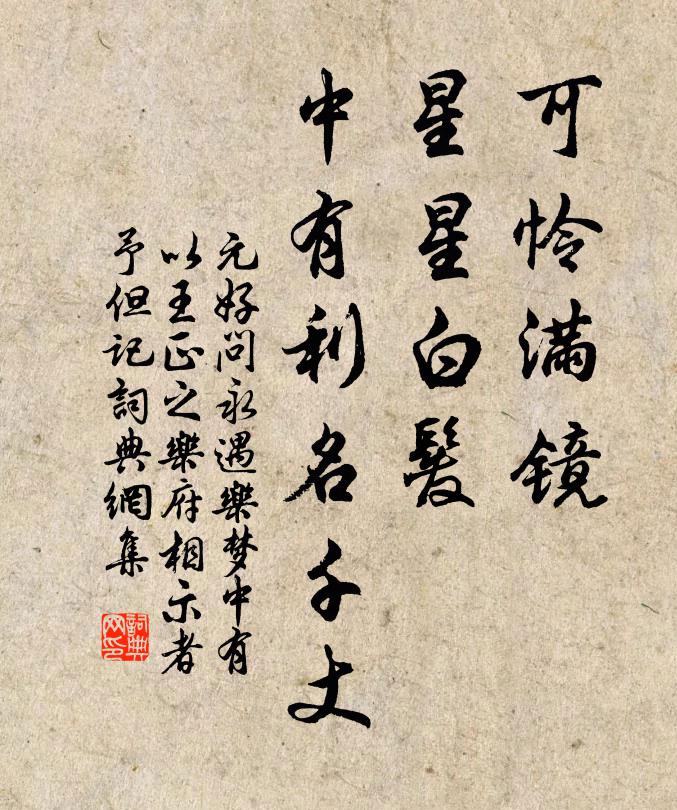 可怜满镜
星星白髮
中有利名千丈
元好问永遇樂梦中有
以王正之樂府相示者
予但记詞典網集
詞典网印